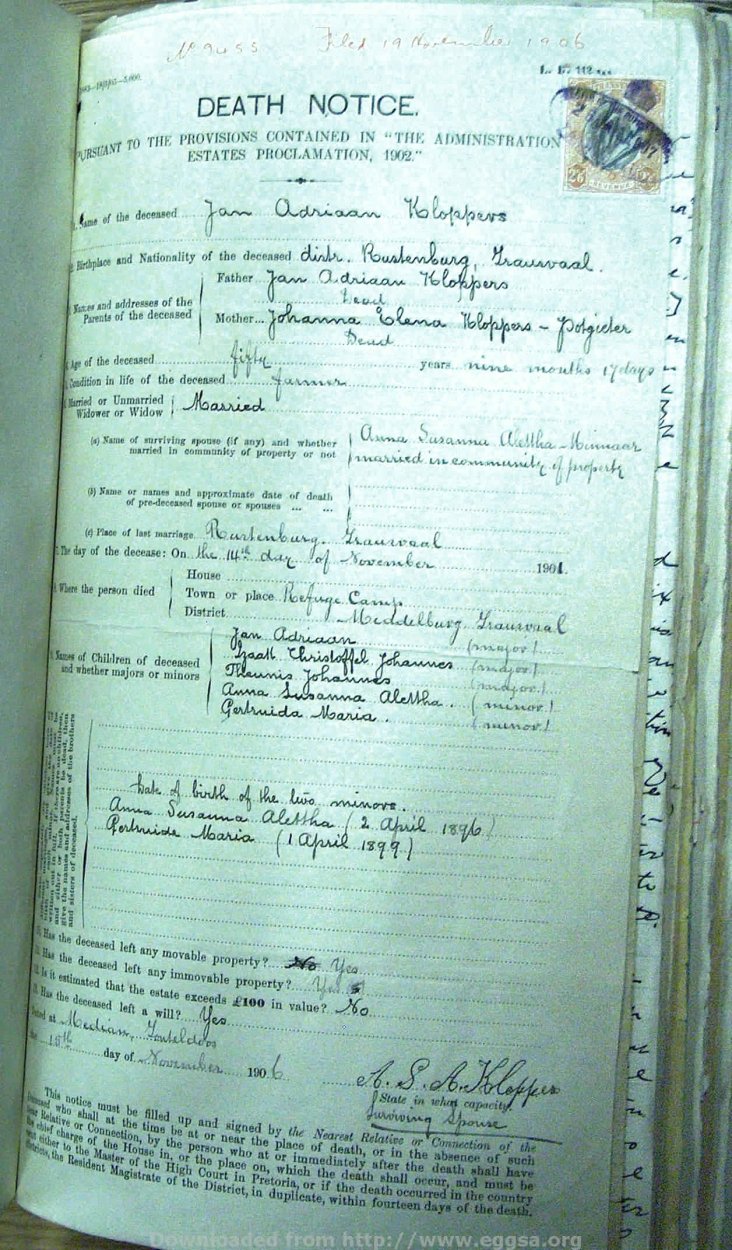 No 9455 Filed 19 November 1906
DEATH NOTICE.
PURSUANT TO THE PROVISIONS CONTAINED IN "THE ADMINISTRATION
ESTATES PROCLAMATION, 1902."
Name of the deceased Jan Adriaan Kloppers
Birthplace and Nationality of the deceased distr. Rustenburg, Transvaal.
Names and addresses of the Parents of the deceased
Father Jan Adriaan Kloppers
Dead
Mother Johanna Elena Kloppers - Potgieter
Dead
Age of the deceased fifty years nine months 17 days
Condition in life of the deceased farmer
Married or Unmarried
Widower or Widow Married
(a) Name of surviving spouse (if any) and whether Anna Susanna Alettha - Minnaar
married in community of property or not married in community of property
(b) Name or names and approximate date of death
of pre-deceased spouse or spouses ... ...
(c) Place of last marriage Rustenburg. Transvaal
The day of the decease: On the 14th day of November 1901.
Where the person died
House
Town or place Refuge Camp
District Middelburg, Transvaal
Names of Children of deceased
and whether majors or minors
Jan Adriaan (major)
Izaak Christoffel Johannes (major)
Theunis Johannes (major)
Anna Susanna Alettha (minor)
Gertruida Maria. (minor)
give the names and addresses of the brothers
and sisters of deceased.
Date of birth of the two minors.
Anna Susanna Alettha (2 April 1896)
Gertruide Maria (1 April 1899)
Has the deceased left any movable property? No Yes
Has the deceased left any immovable property? Yes
Is it estimated that the estate exceeds £100 in value? No
Has the deceased left a will? Yes
Dated at
the 15th day of November 1906
A. S. A. Kloppers
State in what capacity.
Surviving Spouse
This notice must be filled up and signed by the Nearest Relative or Connection of the
deceased who shall at the time be at or near the place of death, or in the absence of such
near Relative or Connection, by the person who at or immediately after the death shall have
the chief charge of the House in, or the place on, which the death shall occur, and must be
sent either to the Master of the High Court in Pretoria, or if the death occurred in the country
districts, the Resident Magistrate of the District, in duplicate, within fourteen days of the death.
Downloaded from http://www.eggsa.org